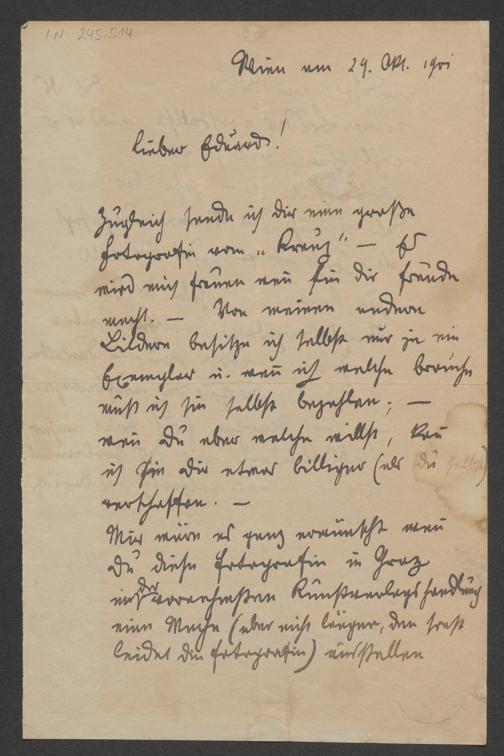 I.N. 245.514
Wien am 29. Okt. 1901
Lieber Eduard!
Zugleich sende ich dir eine große
Fotografie vom „Kreuz" — Es
wird mich freuen wenn sie dir Freude
macht. — Von meinen andern
Bildern besitze ich selbst nur je ein
Exemplar u. wenn ich welche brauche
muß ich sie selbst bezahlen; —
wenn du aber welche willst, kan
ich sie dir etwas billiger (als du selbst)
verschaffen. —
Mir wäre es ganz erwünscht wenn
du diese Fotografie in Graz
in der vornehmsten Kunstverlagshandlung
eine Woche (aber nicht länger, den sonst
leidet die Fotografie) ausstellen